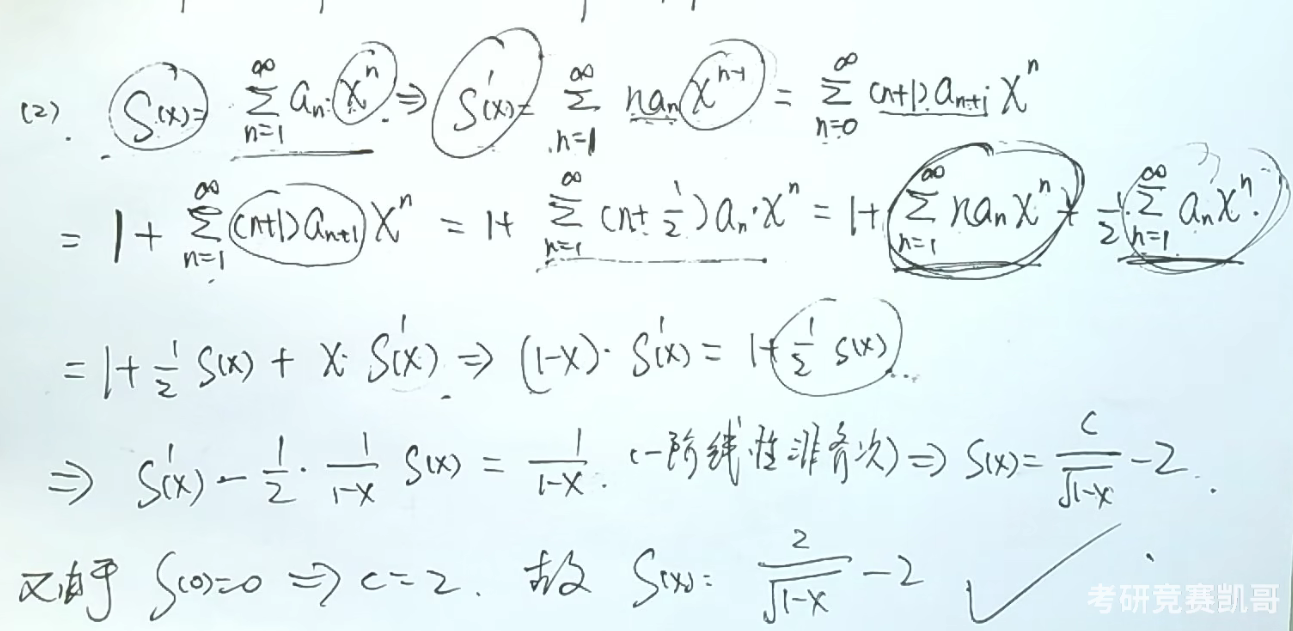 (2). S(x)= ∞∑n=1 aₙ·xⁿ ⇒ S'(x)= ∞∑n=1 naₙxⁿ⁻¹ = ∞∑n=0 (n+1)aₙ₊₁xⁿ
= 1+ ∞∑n=1 (n+1)aₙ₊₁xⁿ = 1+ ∞∑n=1 (n+½)aₙ·xⁿ = 1+ ∞∑n=1 naₙxⁿ + ½·∞∑n=1 aₙxⁿ.
= 1+½ S(x) + x·S'(x) ⇒ (1-x)·S'(x) = 1+½ S(x)
⇒ S'(x) - ½·1/(1-x) S(x) = 1/(1-x). (一阶线性非齐次) ⇒ S(x)= c/√(1-x) -2.
又由于 S(0)=0 ⇒ c=2. 故 S(x)= 2/√(1-x) -2 ✓
考研竞赛凯哥